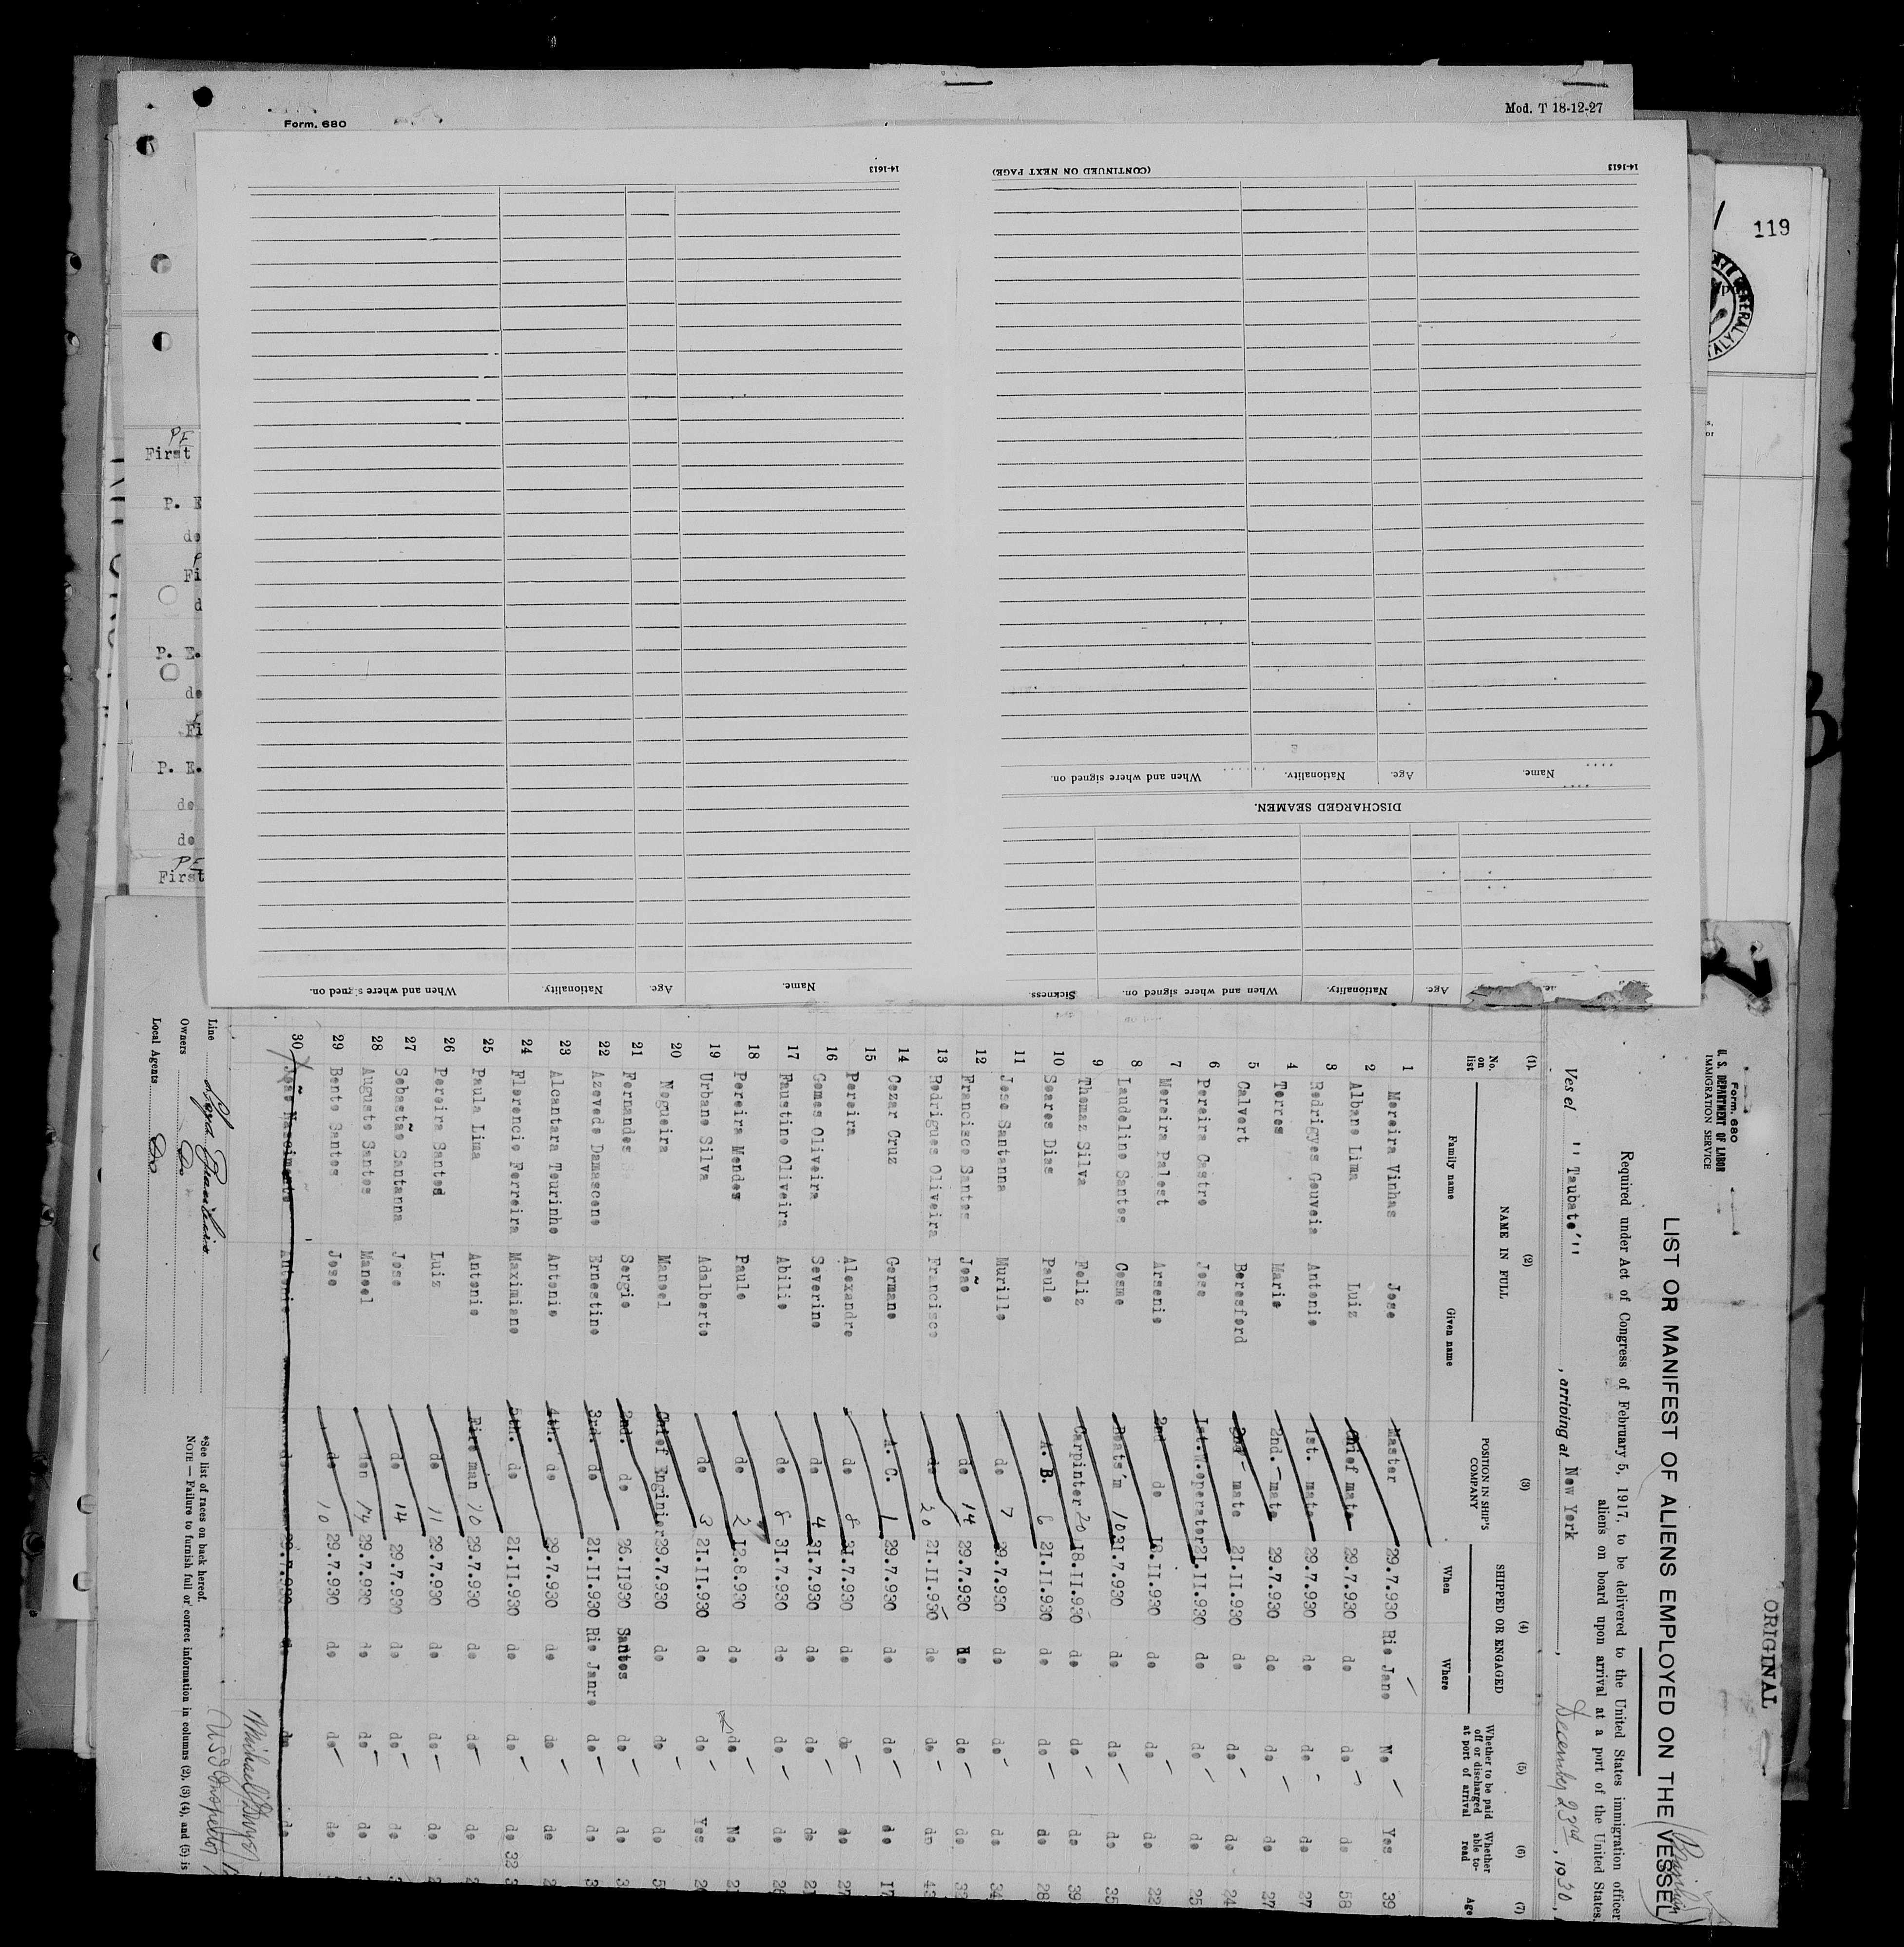 Form. 680
Mod. T 18-12-27
119
14-1613
(CONTINUED ON NEXT PAGE)
14-1613
Name.
Age.
Nationality.
When and where signed on.
DISCHARGED SEAMEN.
Age.
Nationality.
When and where signed on.
Sickness.
Name.
Age.
Nationality.
When and where signed on.
First
P. E
de
Fi
d
P. E.
de
Fi
P. E.
de
de
First
ORIGINAL
Form. 680
U. S. DEPARTMENT OF LABOR
IMMIGRATION SERVICE
LIST OR MANIFEST OF ALIENS EMPLOYED ON THE VESSEL
Required under Act of Congress of February 5, 1917, to be delivered to the United States immigration officer
aliens on board upon arrival at a port of the United States.
Ves el '' Taubate'' , arriving at New York , December 23rd , 1930,
(1) (2) (3) (4) (5) (6) (7)
No. on list NAME IN FULL POSITION IN SHIP'S COMPANY SHIPPED OR ENGAGED Whether to be paid off or discharged at port of arrival Whether able to read Age
Family name Given name When Where
1 Moreira Vinhas Jose Master 29.7.930 Rio Jane No Yes 39
2 Albano Lima Luiz Chief mate 29.7.930 do do do 58
3 Rodrigyes Gouveia Antonio 1st. mate 29.7.930 do do do 27
4 Torres Mario 2nd. mate 29.7.930 do do do 27
5 Calvert Beresford 2nd mate 21.11.930 do do do 24
6 Pereira Castro Jose 1st.w.operator 21.11.930 do do do 25
7 Moreira Palest Arsenio 2nd do 18.11.930 do do do 22
8 Laudelino Santos Cosme Boats'm 10 31.7.930 do do do 35
9 Thomaz Silva Feliz Carpinter 20 18.11.930 do do do 39
10 Soares Dias Paulo A. B. 6 21.11.930 do do do 28
11 Jose Santanna Murillo do 7 29.7.930 do do do 34
12 Francisco Santos João do 14 29.7.930 do do do 32
13 Rodrigues Oliveira Francisco do 20 21.11.930 do do do 43
14 Cezar Cruz Germano A. C. 1 29.7.930 do do do 17
15 Pereira Alexandre do 8 31.7.930 do do do 27
16 Gomes Oliveira Severino do 4 31.7.930 do do do 21
17 Faustino Oliveira Abilio do 8 31.7.930 do do do 26
18 Pereira Mendes Paulo do 2 12.8.930 do do No 2
19 Urbano Silva Adalberto do 3 21.11.930 do do Yes 2
20 Nogueira Manoel Chief Enginier 29.7.930 do do do 5
21 Fernandes Sergio 2nd. do 26.11930 Santos do do 3
22 Azevedo Damasceno Ernestino 3rd. do 21.11.930 Rio Janro do do 3
23 Alcantara Tourinho Antonio 4th. do 29.7.930 do do do 2
24 Florencio Ferreira Maximiano 5th. do 21.11.930 do do do 32 3
25 Paula Lima Antonio Fire man 10 29.7.930 do do do 2
26 Pereira Santos Luiz do 11 29.7.930 do do do 2
27 Sebastão Santanna Jose do 14 29.7.930 do do do
28 Augusto Santos Manoel den 14 29.7.930 do do do
29 Bento Santos Jose do 10 29.7.930 do do do
30 João Nascimento Antonio 29.7.930 do do do
Line Lloyd Brasileiro
Owners Do
Local Agents Do
*See list of races on back hereof.
NOTE — Failure to furnish full or correct information in columns (2), (3) (4), and (5) is